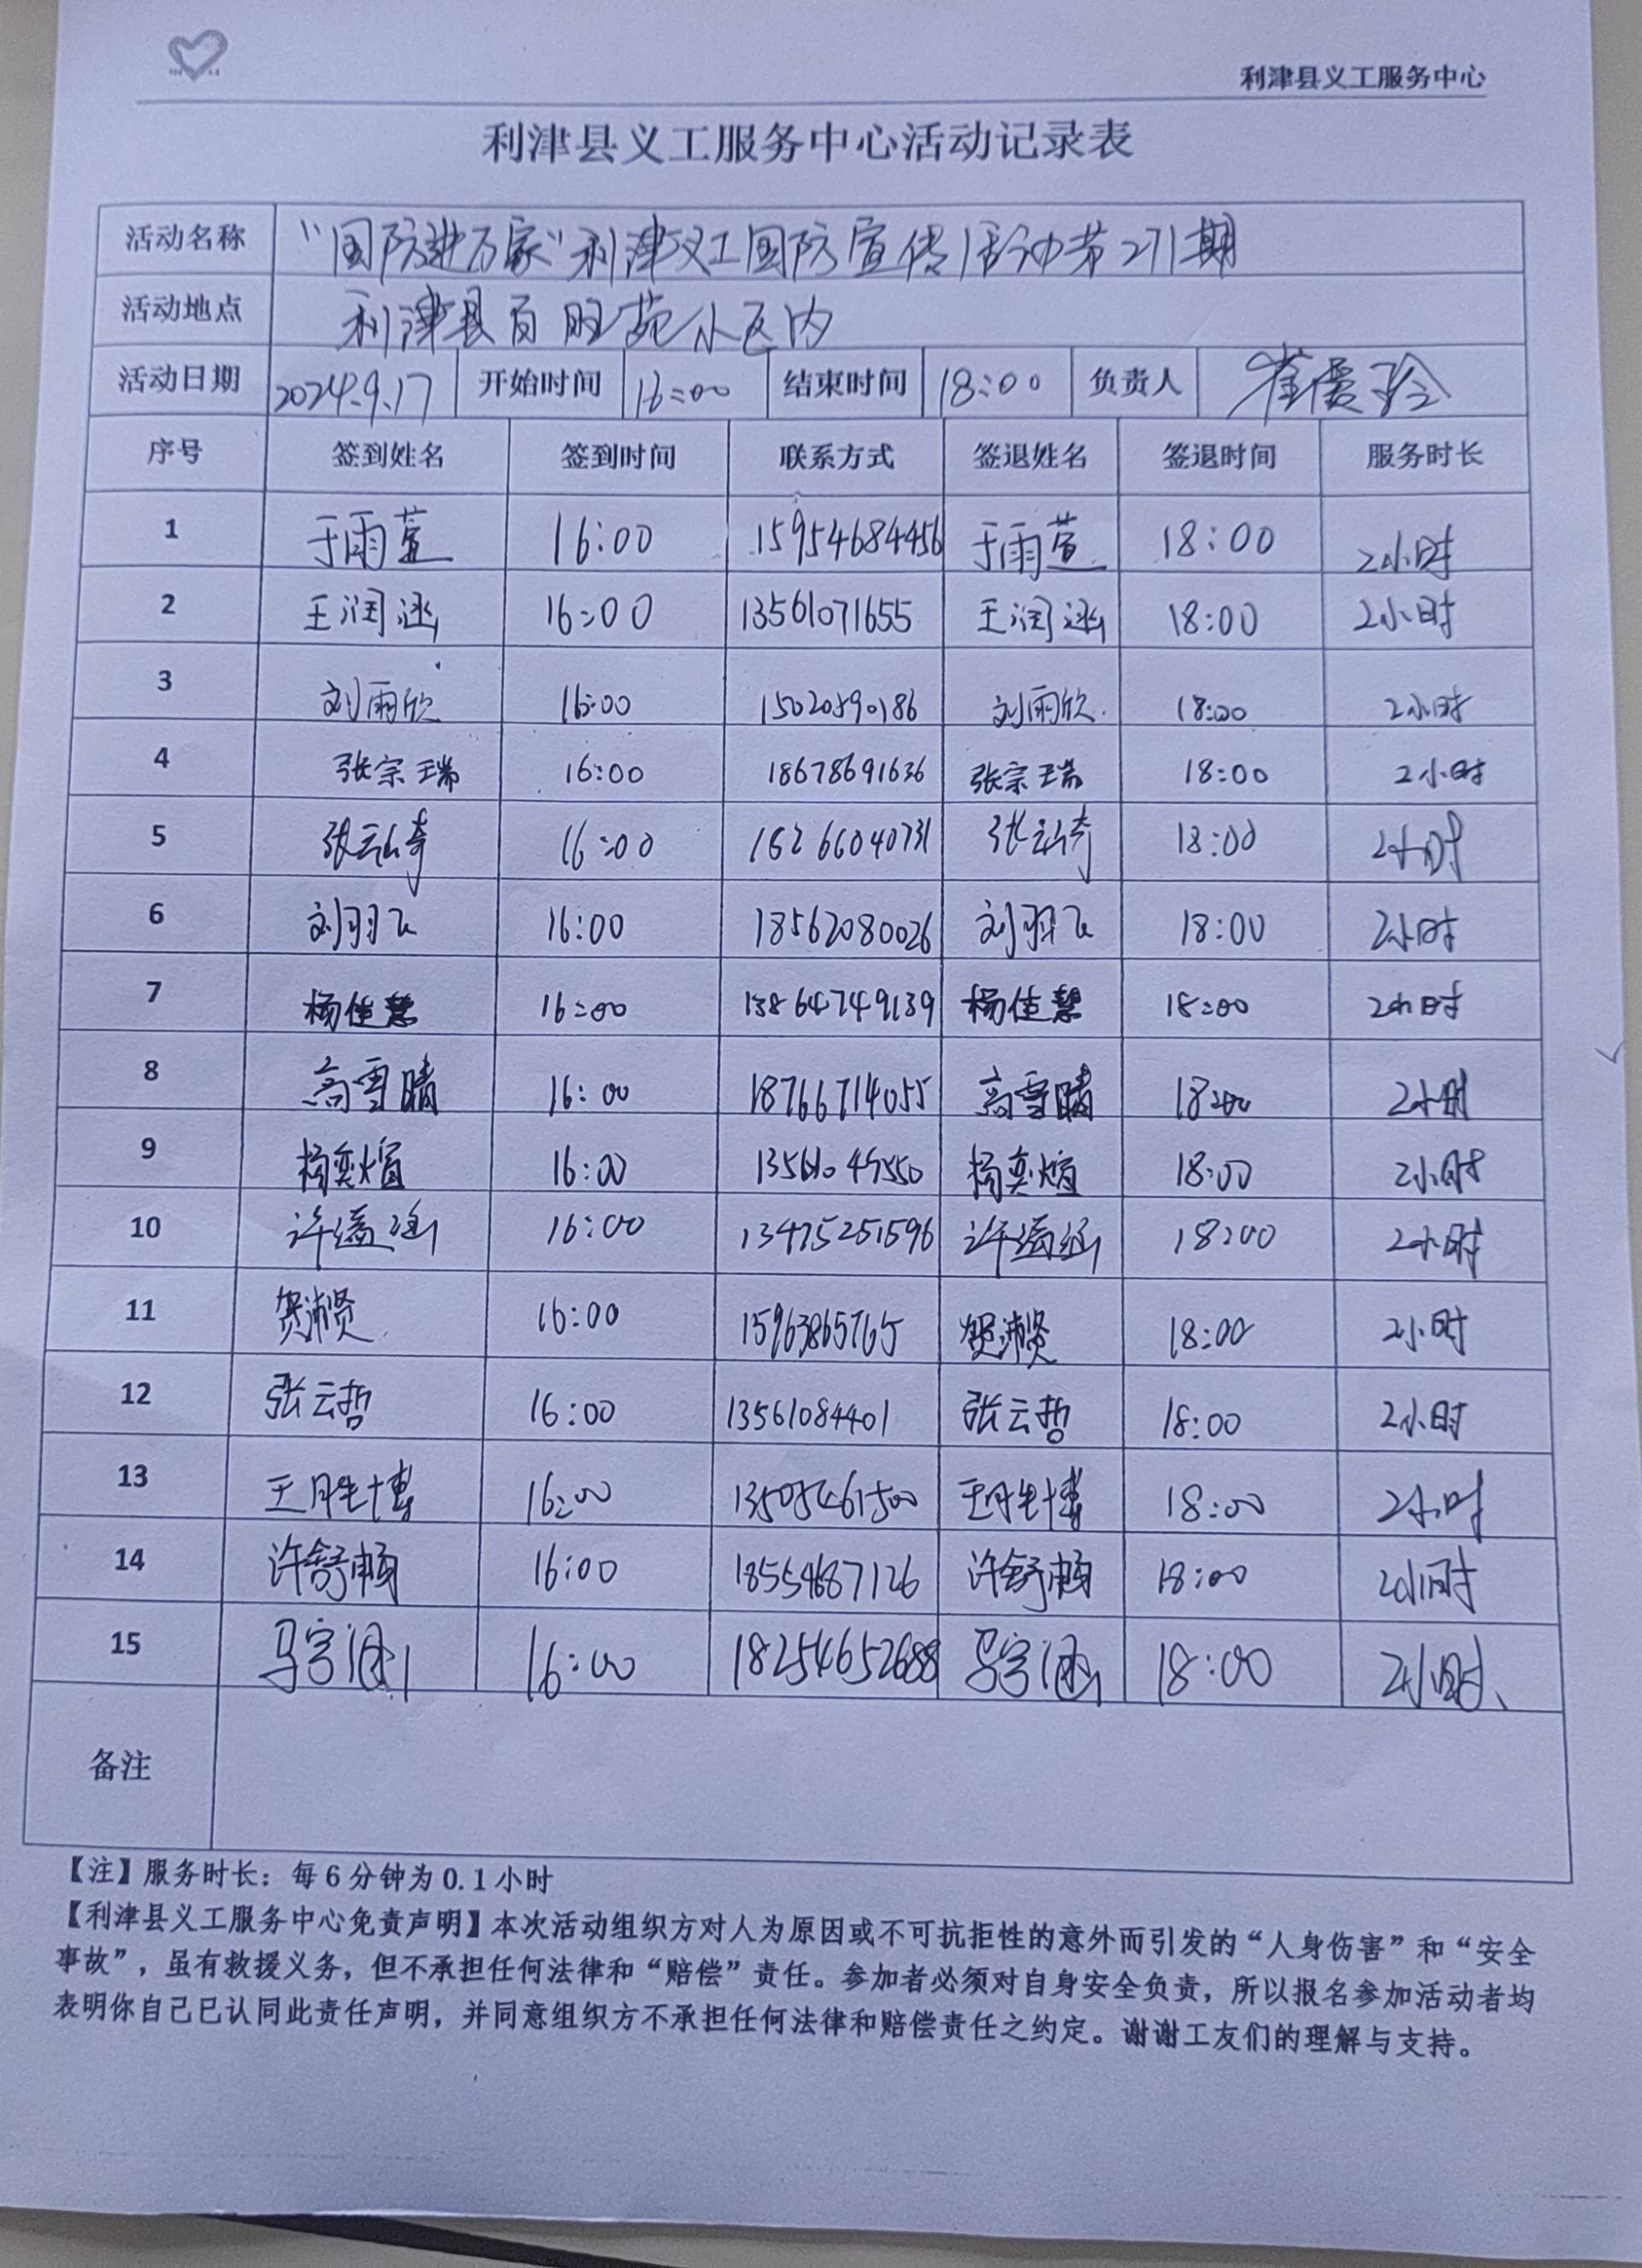 利津县义工服务中心
利津县义工服务中心活动记录表
活动名称 “国防进万家”利津义工国防宣传活动第271期
活动地点 利津县百旺苑小区内
活动日期 2024.9.17 开始时间 16:00 结束时间 18:00 负责人 崔霞玲
序号 签到姓名 签到时间 联系方式 签退姓名 签退时间 服务时长
1 于雨萱 16:00 15954684456 于雨萱 18:00 2小时
2 王润涵 16:00 13561071655 王润涵 18:00 2小时
3 刘雨欣 16:00 15020590186 刘雨欣 18:00 2小时
4 张宗瑞 16:00 18678691636 张宗瑞 18:00 2小时
5 16:00 16266040731 18:00 2小时
6 刘羽飞 16:00 18562080026 刘羽飞 18:00 2小时
7 杨佳慧 16:00 13864749139 杨佳慧 18:00 2小时
8 高雪晴 16:00 18766714055 高雪晴 18:00 2小时
9 杨奕煊 16:00 杨奕煊 18:00 2小时
10 16:00 13475251596 18:00 2小时
11 16:00 15963865765 18:00 2小时
12 张云哲 16:00 13561084401 张云哲 18:00 2小时
13 王胜博 16:00 13505461500 王胜博 18:00 2小时
14 许舒畅 16:00 18554687126 许舒畅 18:00 2小时
15 马宇涵 16:00 18254652688 马宇涵 18:00 2小时
备注
【注】服务时长：每6分钟为0.1小时
【利津县义工服务中心免责声明】本次活动组织方对人为原因或不可抗拒性的意外而引发的“人身伤害”和“安全
事故”，虽有救援义务，但不承担任何法律和“赔偿”责任。参加者必须对自身安全负责，所以报名参加活动者均
表明你自己已认同此责任声明，并同意组织方不承担任何法律和赔偿责任之约定。谢谢工友们的理解与支持。